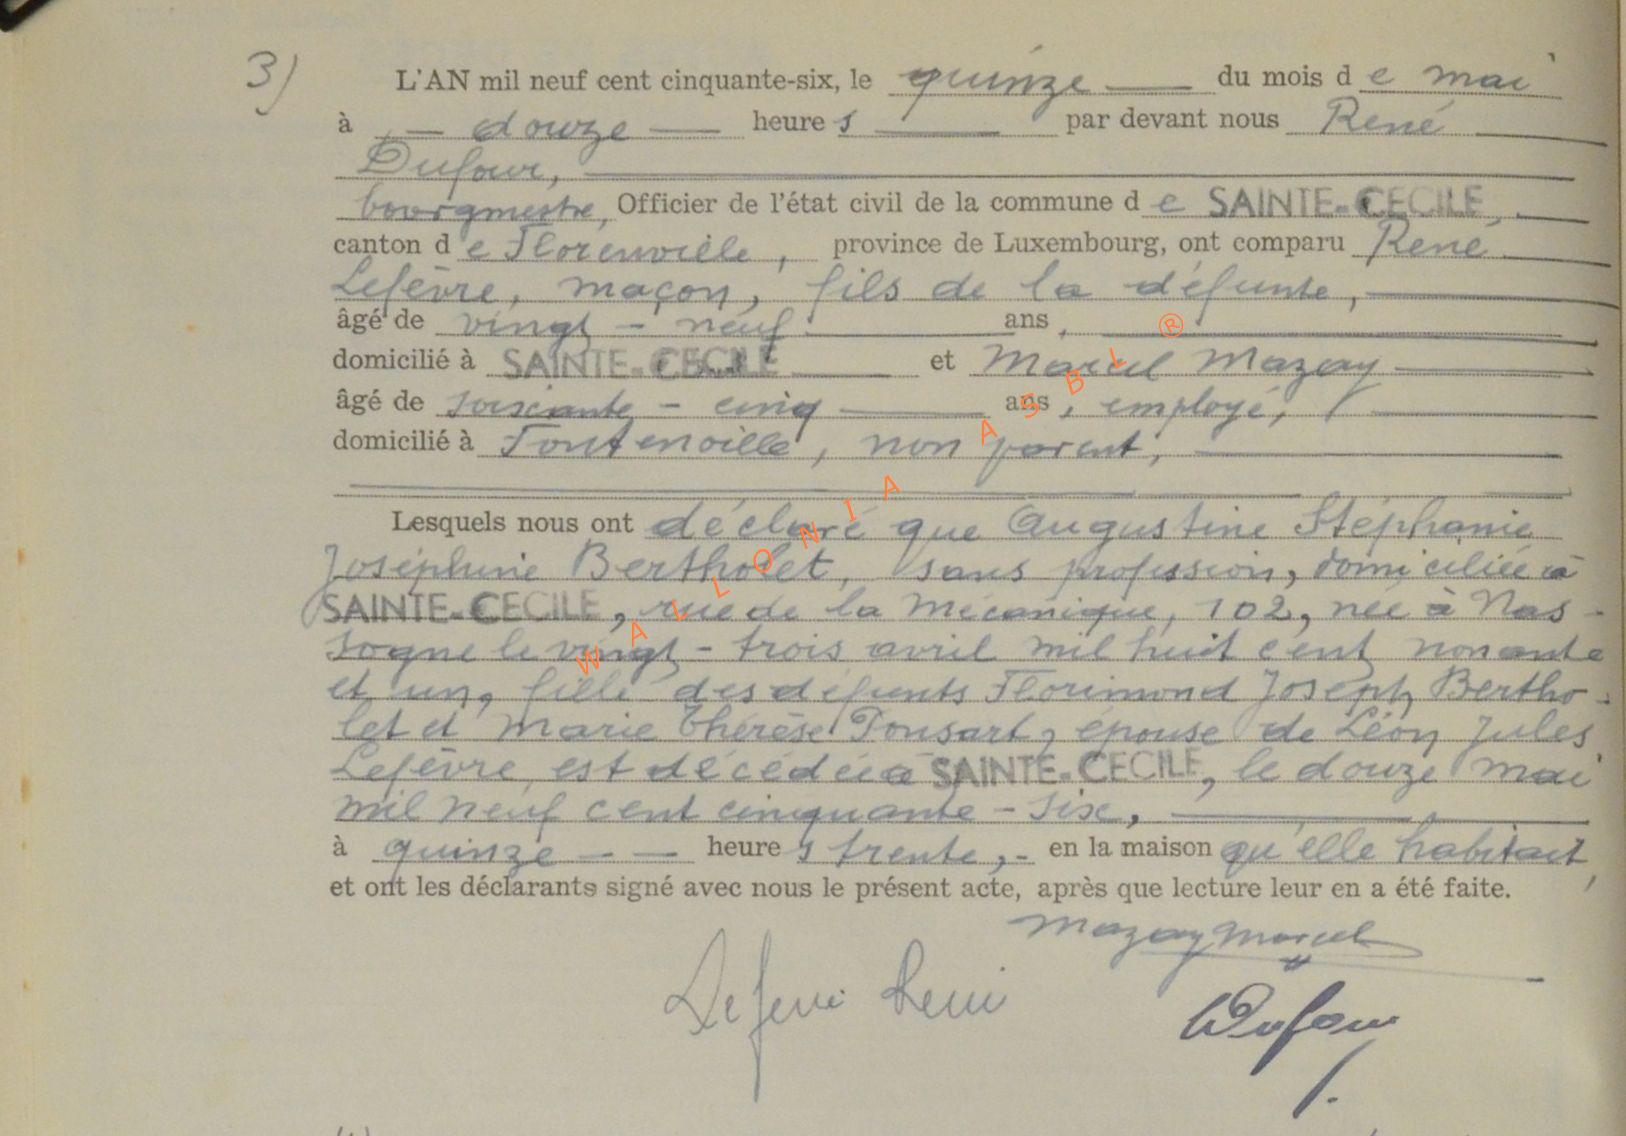 3)
L'AN mil neuf cent cinquante-six, le quinze du mois de mai
à douze heures par devant nous René
Dufour,
bourgmestre, Officier de l'état civil de la commune de SAINTE-CECILE,
canton de Florenville, province de Luxembourg, ont comparu René
Lefèvre, maçon, fils de la défunte,
âgé de vingt-neuf ans,
domicilié à SAINTE-CECILE et Marcel Mazay
âgé de soixante-cinq ans, employé,
domicilié à Fontenoille, non parent,
Lesquels nous ont déclaré que Augustine Stéphanie
Joséphine Bertholet, sans profession, domiciliée à
SAINTE-CECILE, rue de la Mécanique, 102, née à Nas-
sogne le vingt-trois avril mil huit cent nonante
et un, fille des défunts Florimond Joseph Bertho-
let et Marie Thérèse Ponsart, épouse de Léon Jules
Lefèvre, est décédée à SAINTE-CECILE, le douze mai
mil neuf cent cinquante-six,
à quinze heures trente, en la maison qu'elle habitait,
et ont les déclarants signé avec nous le présent acte, après que lecture leur en a été faite.
Mazay Marcel
Lefevre René
Dufour
WALLONIA ASBL ®